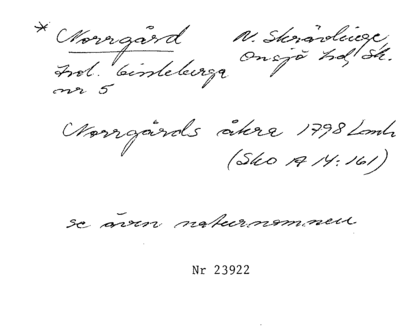 * Norrgård N. Skrävlinge
Onsjö hd, Sk.
hvl. Gissleberga
nr 5
Norrgårds åkra 1798 Lmh
(Sko A 14:161)
se även naturnamnen
Nr 23922